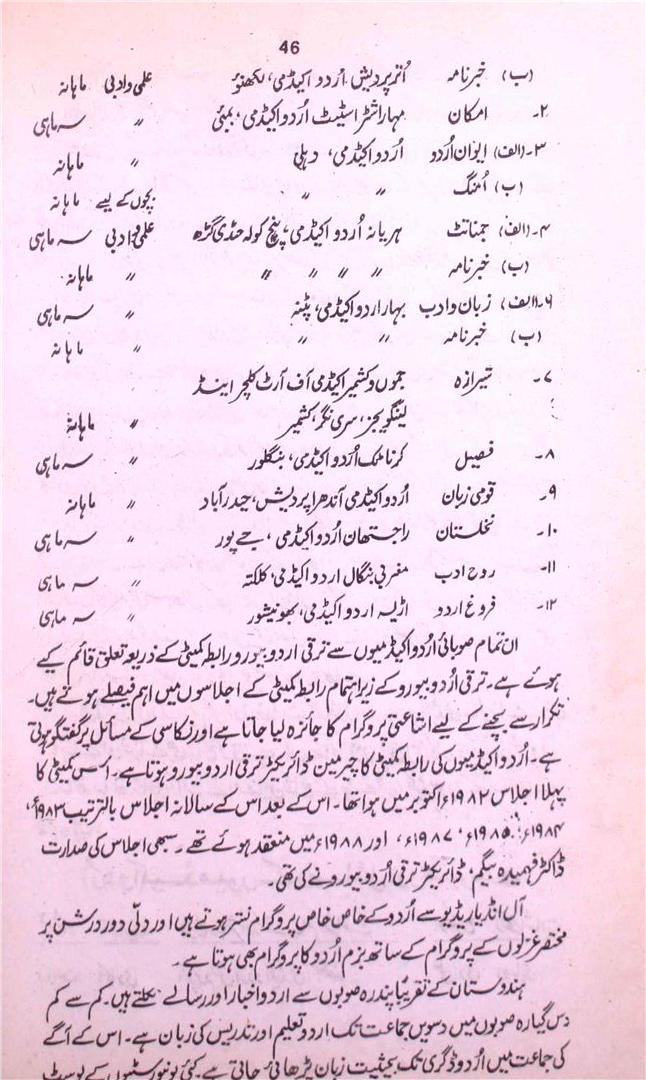 46
(ب) خبرنامہ اُترپردیش اردو اکیڈمی، لکھنؤ علمی و ادبی ماہانہ
۲۔ امکان مہاراشٹر اسٹیٹ اُردو اکیڈمی، بمبئی " سہ ماہی
۳۔ (الف) ایوان اُردو اُردو اکیڈمی، دہلی " ماہانہ
(ب) اُمنگ " " بچوں کے لیے ماہانہ
۴۔ (الف) جمناتٹ ہریانہ اُردو اکیڈمی، پنچ کولہ چنڈی گڑھ علمی و ادبی سہ ماہی
(ب) خبرنامہ " " " " " ماہانہ
۶۔ (الف) زبان و ادب بہار اردو اکیڈمی، پٹنہ " سہ ماہی
(ب) خبرنامہ " " " ماہانہ
۷۔ شیرازہ جموں و کشمیر اکیڈمی آف آرٹ کلچر اینڈ
لینگویجز، سری نگر، کشمیر " ماہانہ
۸۔ فصیل کرناٹک اُردو اکیڈمی، بنگلور " سہ ماہی
۹۔ قومی زبان اُردو اکیڈمی آندھراپردیش، حیدرآباد " ماہانہ
۱۰۔ نخلستان راجستھان اُردو اکیڈمی، جے پور " سہ ماہی
۱۱۔ روح ادب مغربی بنگال اردو اکیڈمی، کلکتہ " سہ ماہی
۱۲۔ فروغ اردو اڑیسہ اردو اکیڈمی، بھونیشور " سہ ماہی
ان تمام صوبائی اُردو اکیڈمیوں سے ترقی اردو بیورو رابطہ کمیٹی کے ذریعہ تعلق قائم کیے
ہوئے ہے۔ ترقی اُردو بیورو کے زیر اہتمام رابطہ کمیٹی کے اجلاسوں میں اہم فیصلے ہوتے ہیں۔
تکرار سے بچنے کے لیے اشاعتی پروگرام کا جائزہ لیا جاتا ہے اور نکاسی کے مسائل پر گفتگو ہوتی
ہے۔ اُردو اکیڈمیوں کی رابطہ کمیٹی کا چیرمین ڈائریکٹر ترقی اردو بیورو ہوتا ہے۔ اس کمیٹی کا
پہلا اجلاس ۱۹۸۲ء اکتوبر میں ہوا تھا۔ اس کے بعد اس کے سالانہ اجلاس بالترتیب ۱۹۸۳ء،
۱۹۸۴ء، ۱۹۸۵ء، ۱۹۸۷ء، اور ۱۹۸۸ء میں منعقد ہوئے تھے۔ سبھی اجلاس کی صدارت
ڈاکٹر فہمیدہ بیگم، ڈائریکٹر ترقی اُردو بیورو نے کی تھی۔
آل انڈیا ریڈیو سے اُردو کے خاص خاص پروگرام نشر ہوتے ہیں اور دلّی دوردرشن پر
مختصر غزلوں کے پروگرام کے ساتھ بزم اُردو کا پروگرام بھی ہوتا ہے۔
ہندوستان کے تقریباً پندرہ صوبوں سے اردو اخبار اور رسالے نکلتے ہیں۔ کم سے کم
دس گیارہ صوبوں میں دسویں جماعت تک اردو تعلیم اور تدریس کی زبان ہے۔ اس کے آگے
کی جماعت میں اُردو ڈگری تک بحیثیت زبان پڑھائی جاتی ہے۔ کئی یونیورسٹیوں کے پوسٹ